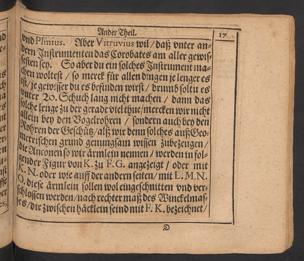 Ander Theil. 17
vnd Plinius. Aber Vitruvius wil / daß vnter an-
dern Instrumenten das Corobates am aller gewis-
sesten sey. So aber du ein solches Instrument ma-
chen woltest / so merck für allen dingen je lenger es
ist / je gewisser du es befinden wirst / drumb soltu es
vnter 20. Schuch lang nicht machen / dann das
solche lenge zu der grade viel thue / mercken wir nicht
allein bey den Vogelrohren / sondern auch bey den
Rohren der Geschütz / alß wir denn solches auß Geo-
metrischen grund genungsam wissen zubezeugen /
die Anconen so wir ärmlein nennen / werden in fol-
gender Figur von K. zu F. G. angezeigt / oder mit
K. N. oder wie auff der andern seiten / mit L. M. N.
O. diese ärmlein sollen wol eingeschnitten vnd ver-
schlossen werden / nach rechter maß des Winckelmas-
ses / die zwischen häcklein seind mit F. K. bezeichnet /
D